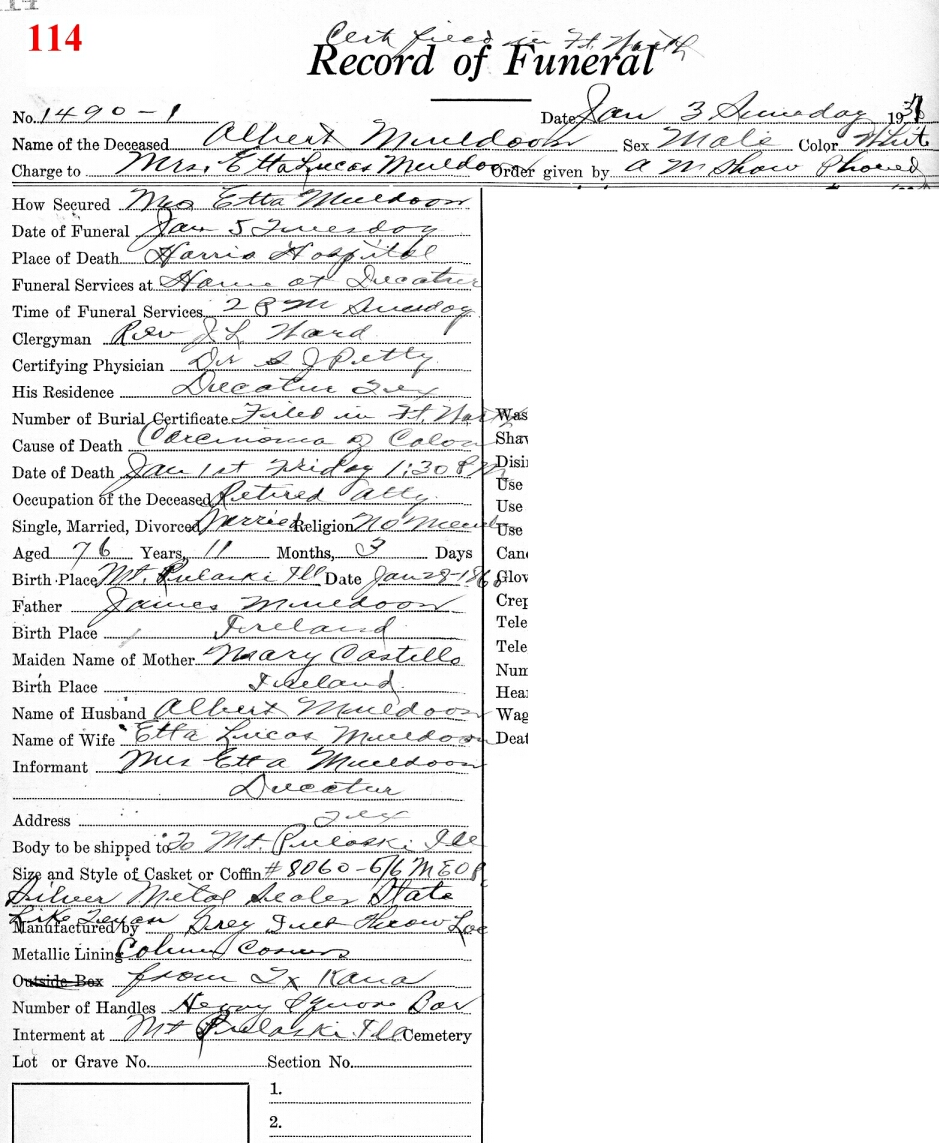 114
Cert filed in Ft. Worth
Record of Funeral
No. 1490-1 Date Jan 3 Sunday 1937
Name of the Deceased Albert Muldoon Sex Male Color Whit
Charge to Mrs. Etta Lucas Muldoon Order given by A M Shaw Phoned
How Secured Mrs Etta Muldoon
Date of Funeral Jan 5 Tuesday
Place of Death Harris Hospital
Funeral Services at Home at Decatur
Time of Funeral Services 2 PM Sunday
Clergyman Rev J L Ward
Certifying Physician Dr S J Petty
His Residence Decatur Tex
Number of Burial Certificate Filed in Ft. Worth Was
Cause of Death Carcinoma of Colon Shav
Date of Death Jan 1st Friday 1:30 PM Disi
Occupation of the Deceased Retired Atty. Use
Use
Single, Married, Divorced Married Religion No Use
Aged 76 Years, 11 Months, 3 Days Cand
Birth Place Mt. Pulaski Ill Date Jan 28-1860 Glov
Father James Muldoon Crep
Birth Place Ireland Tele
Maiden Name of Mother Mary Costello Tele
Birth Place Ireland Num
Hear
Name of Husband Albert Muldoon Wag
Name of Wife Etta Lucas Muldoon Deat
Informant Mrs Etta Muldoon
Decatur
Address Tex
Body to be shipped to To Mt. Pulaski Ill
Size and Style of Casket or Coffin #8060-6/6
Silver Metal Sealer State
Like Grey Throw
Manufactured by
Metallic Lining Column Corners
Outside Box from Tx Kana
Number of Handles Heavy Square Bar
Interment at Mt Pulaski Ill Cemetery
Lot or Grave No. Section No.
1.
2.